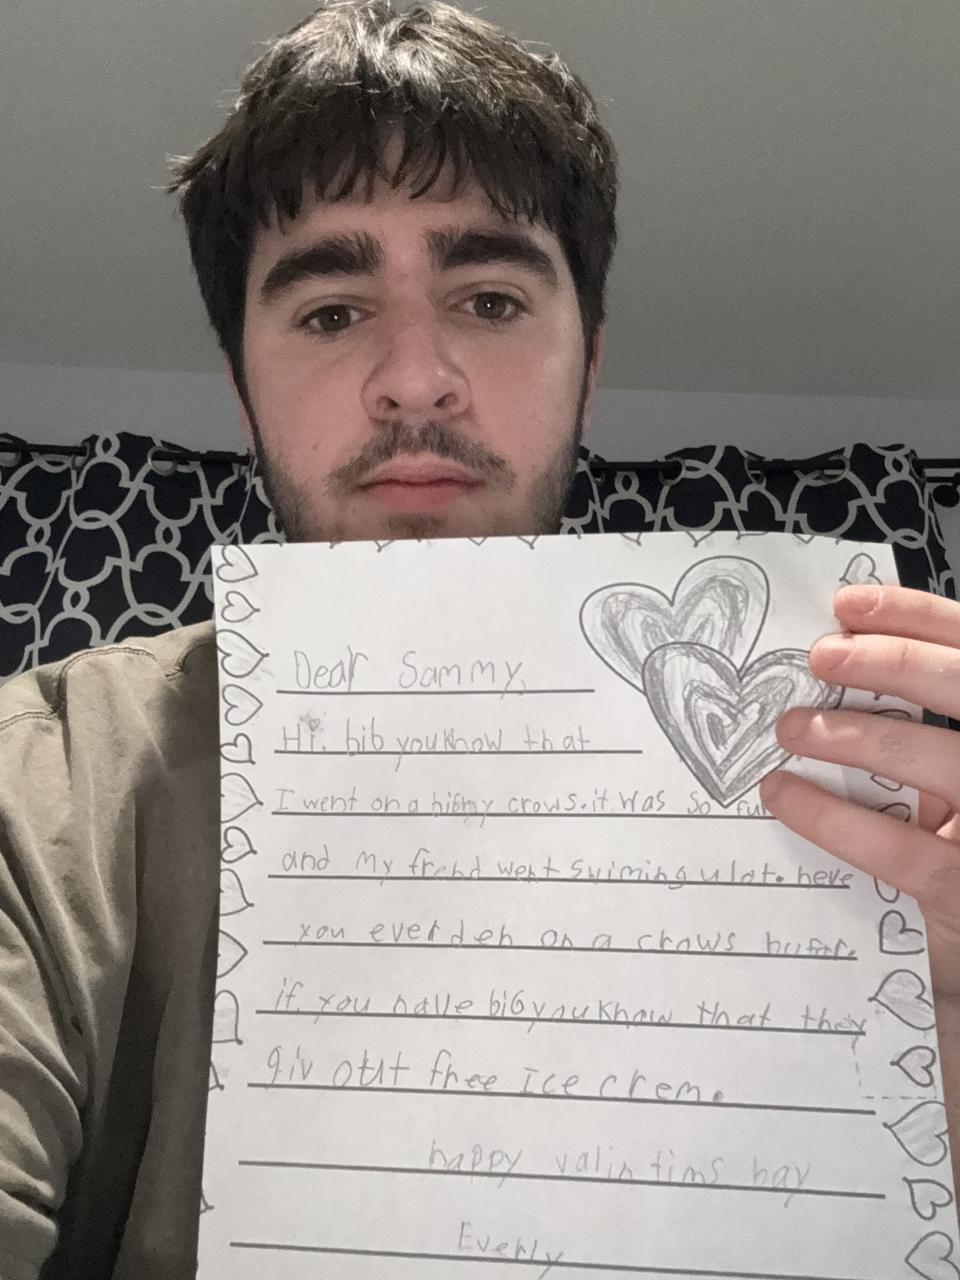 Dear Sammy,
Hi. bib you know that
I went on a bisny crows. it was so fun
and my frend went swiming ulot. heve
you ever deh on a crows bufor.
if you have bib you know that they
giv out free ice crem.
happy valintims bay
Everly